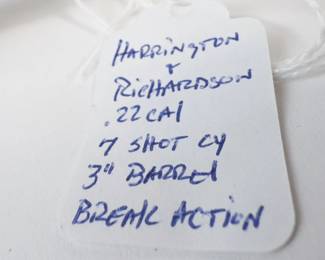 HARRINGTON
&
RICHARDSON
.22 CAl
7 SHOT CY
3" BARREl
BREAK ACTION